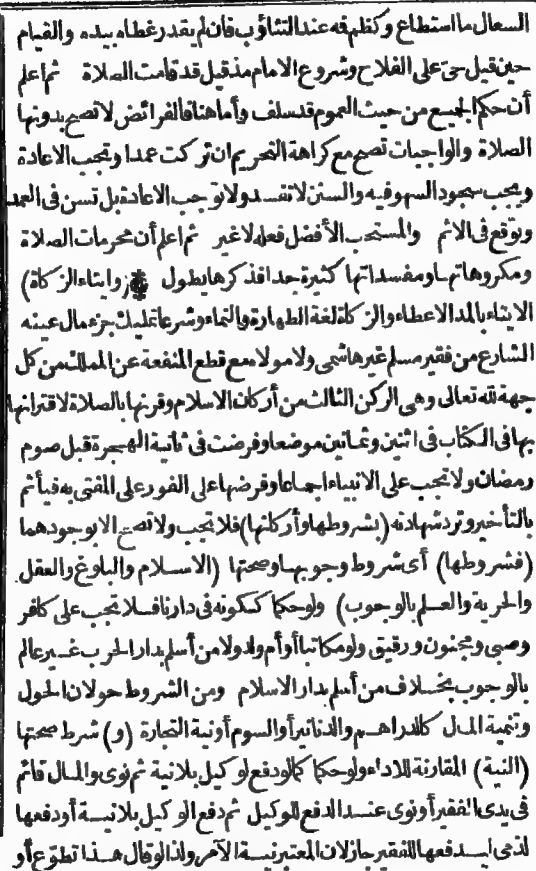 السعال ما استطاع وكظم فمه عند التثاؤب فان لم يقدر غطاه بيده والقيام
حين قيل حي على الفلاح وشروع الامام مذ قيل قد قامت الصلاة ثم اعلم
أن حكم الجميع من حيث العموم قد سلف وأما هنا فالفرائض لا تصح بدونها
الصلاة والواجبات تصح مع كراهة التحريم ان تركت عمدا وتجب الاعادة
ويجب سجود السهو فيه والسنن لا تفسد ولا توجب الاعادة بل تسن في العمد
وتوقع في الاثم والمستحب الأفضل فعله لا غير ثم اعلم أن محرمات الصلاة
ومكروهاتها ومفسداتها كثيرة جدا فذكرها يطول (وايتاء الزكاة)
الايتاء بالمد الاعطاء والزكاة لغة الطهارة والنماء وشرعا تمليك جزء مال عينه
الشارع من فقير مسلم غير هاشمي ولا مولاه مع قطع المنفعة عن المملك من كل
جهة لله تعالى وهي الركن الثالث من أركان الاسلام وقرنها بالصلاة لاقترانها
بها في الكتاب في اثنين وثمانين موضعا وفرضت في ثانية الهجرة قبل صوم
رمضان ولا تجب على الانبياء اجماعا وفرضها على الفور على المفتى به فيأثم
بالتأخير وترد شهادته (بشروطها وأركانها) فلا تجب ولا تصح الا بوجودهما
(فشروطها) أي شروط وجوبها وصحتها (الاسلام والبلوغ والعقل
والحرية والعلم بالوجوب) ولو حكما ككونه في دارنا فلا تجب على كافر
وصبي ومجنون ورقيق ولو مكاتبا أو أم ولد ولا من أسلم بدار الحرب غير عالم
بالوجوب بخلاف من أسلم بدار الاسلام ومن الشروط حولان الحول
وتنمية المال كالدراهم والدنانير أو السوم أو نية التجارة (و) شرط صحتها
(النية) المقارنة للاداء ولو حكما كما لو دفع لوكيل بلا نية ثم نوى والمال قائم
في يدي الفقير أو نوى عند الدفع للوكيل ثم دفع الوكيل بلا نية أو دفعها
لذمي ليدفعها للفقير جاز لان المعتبر نية الآمر ولذا لو قال هذا تطوّع أو